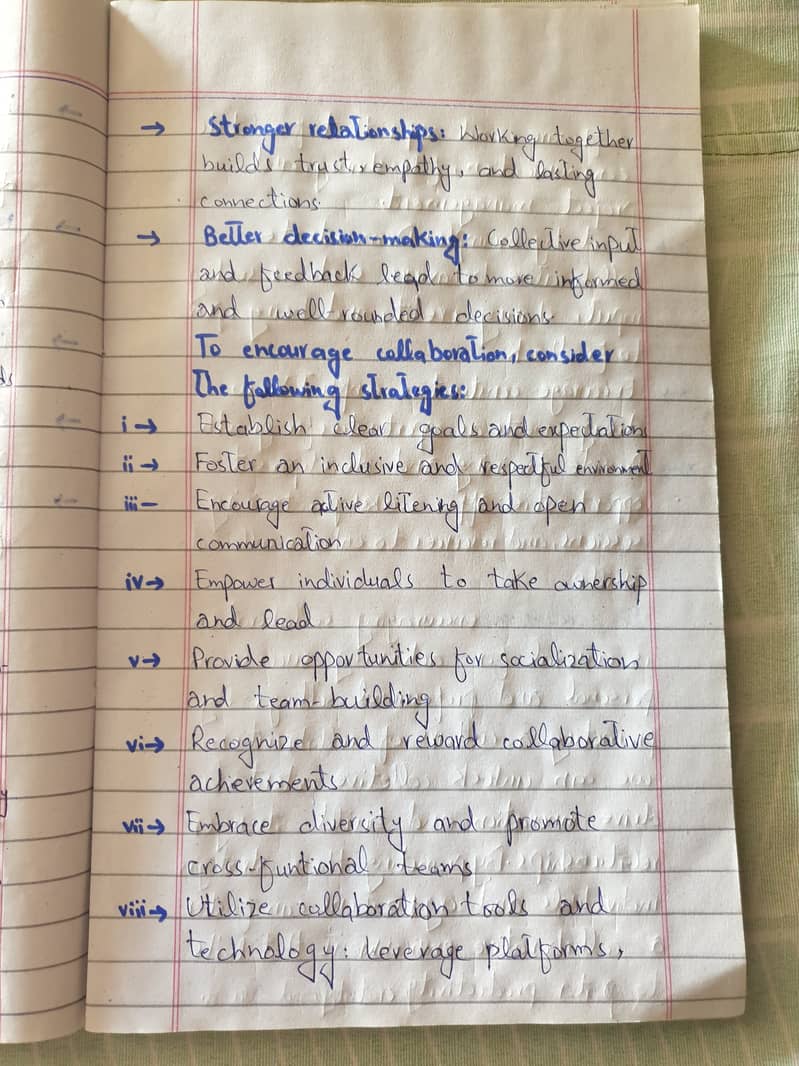 → Stronger relationships: Working together
builds trust, empathy, and lasting
connections.
→ Better decision-making: Collective input
and feedback lead to more informed
and well-rounded decisions.
To encourage collaboration, consider
the following strategies:
i → Establish clear goals and expectations
ii → Foster an inclusive and respectful environment
iii – Encourage active litening and open
communication
iv → Empower individuals to take ownership
and lead
v → Provide opportunities for socialization
and team-building
vi → Recognize and reward collaborative
achievements
vii → Embrace diversity and promote
cross-funtional teams
viii → Utilize collaboration tools and
technology: Leverage platforms,